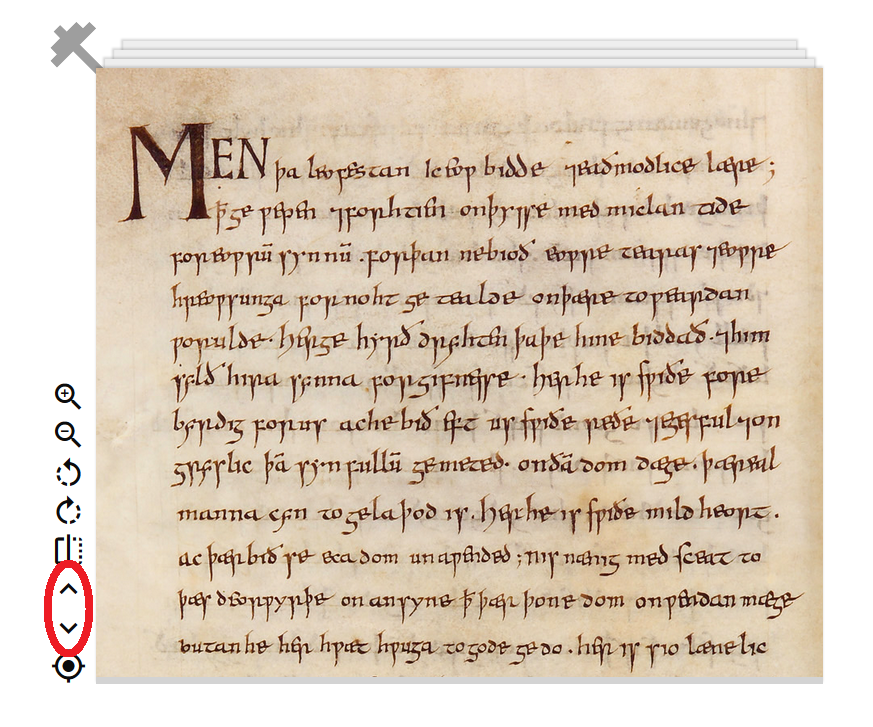 MEN þa leofestan ic eoƿ bidde ⁊ eadmodlice lære;
ꝥ ge ƿepen ⁊ forhtien on þysse medmiclan tide
for eoƿrū synnū . forþan ne bioð eoƿre tearas ⁊ eoƿre
hreoƿsunga for noht ge tealde on þære to ƿeardan
ƿorulde . her ge hyrð dryhten þa þe hine biddað . ⁊ him
sylð hira synna forgifnesse . her he is sƿiðe fore
byrdig for us ac he bið eft us sƿiðe reðe ⁊ egesful ⁊ on
gryslic þā synfullū gemeted . on ðā dom dæge . þær eal
manna cyn to gelaþod is . her he is sƿiðe mild heort .
ac þær bið se eca dom unaƿended ; nis nænig med sceat to
þæs deorƿyrþe on ansyne ꝥ þær þone dom onƿendan mæge
butan he her hƿæt hƿuga to gode gedo . her is sio lænelic